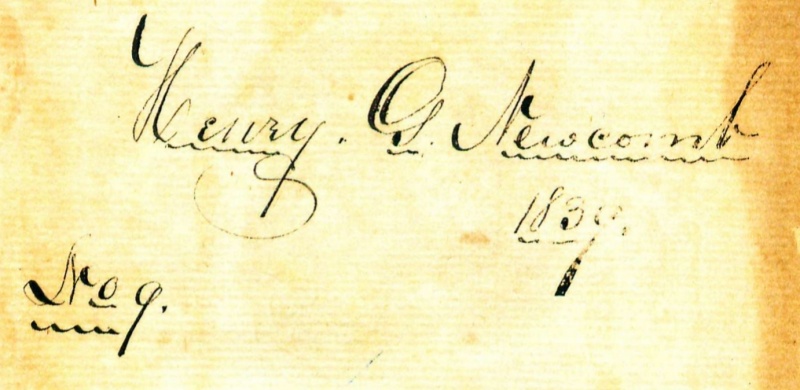 Henry. G. Newcomb
1839.
No 9.